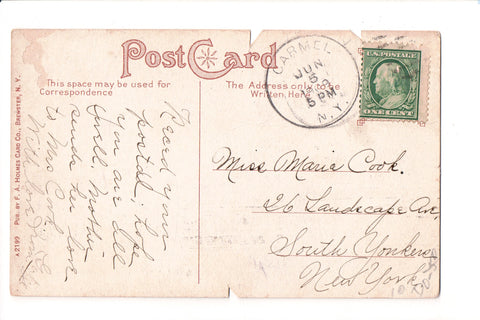 Post Card
This space may be used for
Correspondence
The Address only to be
Written Here
CARMEL
JUN
5
5 PM
N.Y.
U.S. POSTAGE
ONE CENT
Rec'd your
postal; hope
you are all
well. Mother
sends her love
to Mrs Cook
With love from
Miss Marie Cook.
26 Landscape Ave,
South Yonkers,
New York.
A2199 PUB. BY F. A. HOLMES CARD CO., BREWSTER, N. Y.